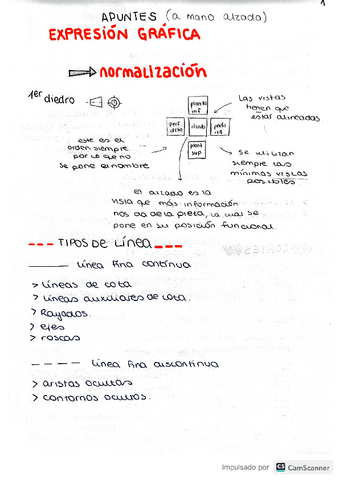 1
APUNTES (a mano alzada)
EXPRESIÓN GRÁFICA
normalización
1er diedro
planta inf
perf. dcho
alzado
perfil izq
planta sup
Las vistas
tienen que
estar alineadas
este es el
orden siempre
por lo que no
se pone el nombre
se utilizan
siempre las
mínimas vistas
posibles
el alzado es la
vista que más información
nos da de la pieza, la cual se
pone en su posición funcional.
--- TIPOS DE LÍNEA ---
Línea fina continua
> Líneas de cota
> Líneas auxiliares de cota.
> Rayados.
> ejes
> roscas
Línea fina discontinua
> aristas ocultas
> contornos ocultos.
Impulsado por CS CamScanner